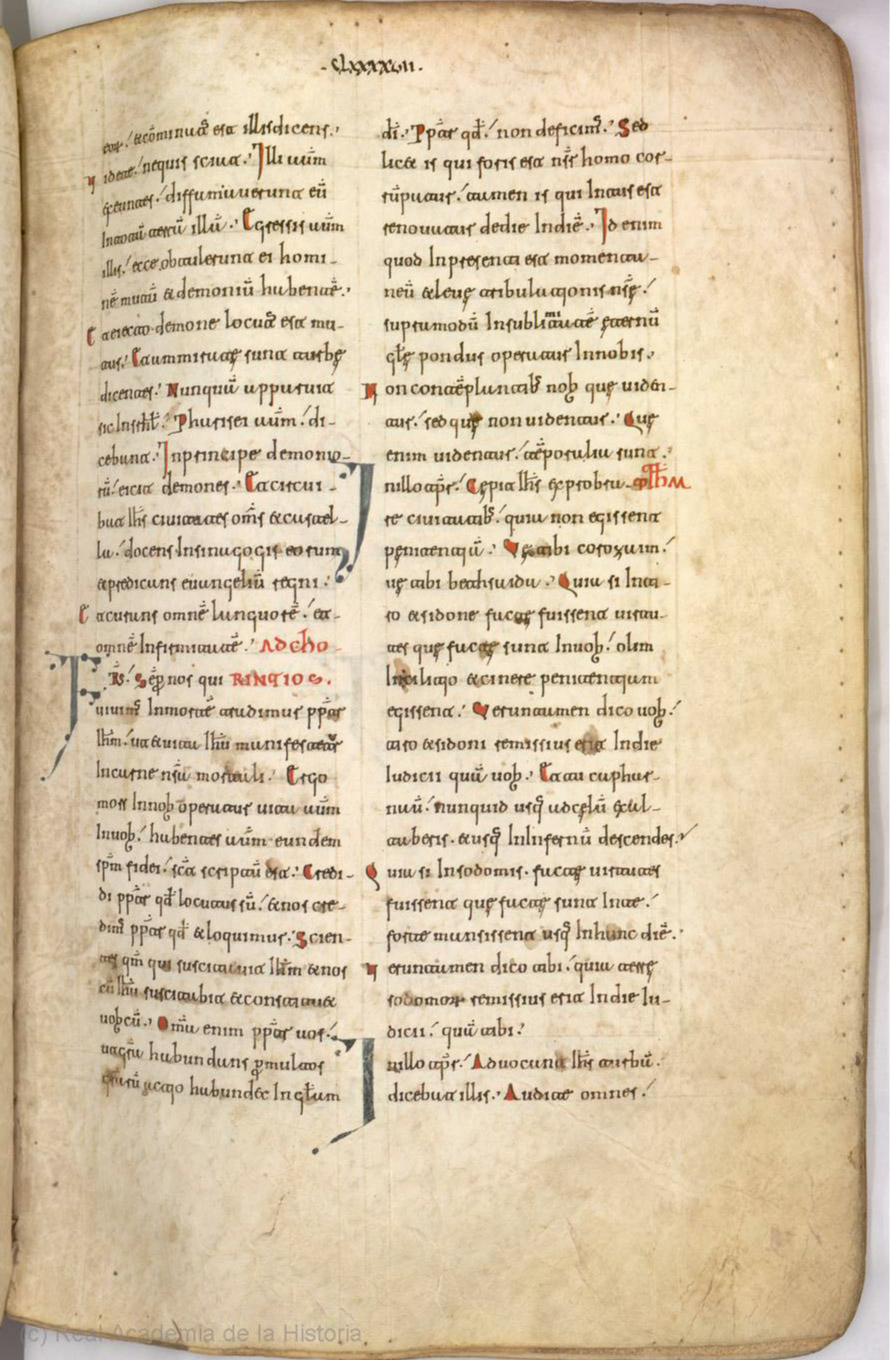 -CLXXXXVII-
eor̄. et cōminat̄ est illis dicens.
Uidete nequis sciat. Illi aūm
exeuntes diffamauerunt eū
In totā terrā illā. Egressis aūm
illis. ecce obtulerunt ei homi-
nē mutū et demoniū habentē.
Et eiecto demone locut̄ est mu-
tus. Et ammirate sunt turbę
dicentes. Nunquā apparuit
sic In srhl. Pharisei aūm. di-
cebant. In principe demonio-
rū. eicit demones. Et circui-
bat ihs ciuitates om̄s et castel-
la. docens In sinagogis eorum
et predicans euangeliū regni.
Et curans omnē languorē. et
omnē Infirmitatē. AD CHO
FRS. Sēp nos qui RINTIOS.
uiuim̄ In mortē tradimus pp̄tr
ihm. ut et uita ihū manifestetur
In carne nsā mortali. Ergo
mors In nob operatur uita aūm
In uob. habentes aūm eundem
spm fidei. sc̄a scriptū est. Credi-
di pp̄tr qd locutus sū. et nos cre-
dim̄ pp̄tr qd et loquimur. Scien-
tes qm qui suscitauit ihm et nos
cū ihū suscitabit et constituet
uobcū. Omīa enim pp̄tr uos.
ut gr̄a habundans p multos
gr̄arū actio habundet In gl̄am
dī. Pp̄tr qd. non deficim̄. Sed
licet is qui foris est nsr̄ homo cor-
rūpatur. tamen is qui Intus est
renouatur de die In diē. Id enim
quod In presenti est momenta-
neū et leuę tribulationis nsę.
supra modū In sublimitatē ęternū
glę pondus operatur In nobis.
Non contēplantib nob que uiden-
tur. sed quę non uidentur. Quę
enim uidentur. tēporalia sunt.
In illo tp̄r. Cepit ihs exprobra- MTHM
re ciuitatib. quia non egissent
pęnitentiā. Uę tibi corozaim.
uę tibi bethsaida. Quia si In ti-
ro et sidone factę fuissent uirtu-
tes quę factę sunt In uob. olim
In cilicio et cinere penitentiam
egissent. Uerumtamen dico uob.
tiro et sidoni remissius erit In die
Iudicii quā uob. Et tu caphar-
nau. nunquid usq ad celū exal-
taberis. et usq In Infernū descendes.
Quia si In sodomis. factę uirtutes
fuissent quę factę sunt In te.
forte mansissent usq In hunc diē.
Uerumtamen dico tibi. quia terrę
sodomor̄ remissius erit In die Iu-
dicii. quā tibi.
In illo tp̄r. Aduocans ihs turbā.
dicebat illis. Audite omnes.
(c) Real Academia de la Historia